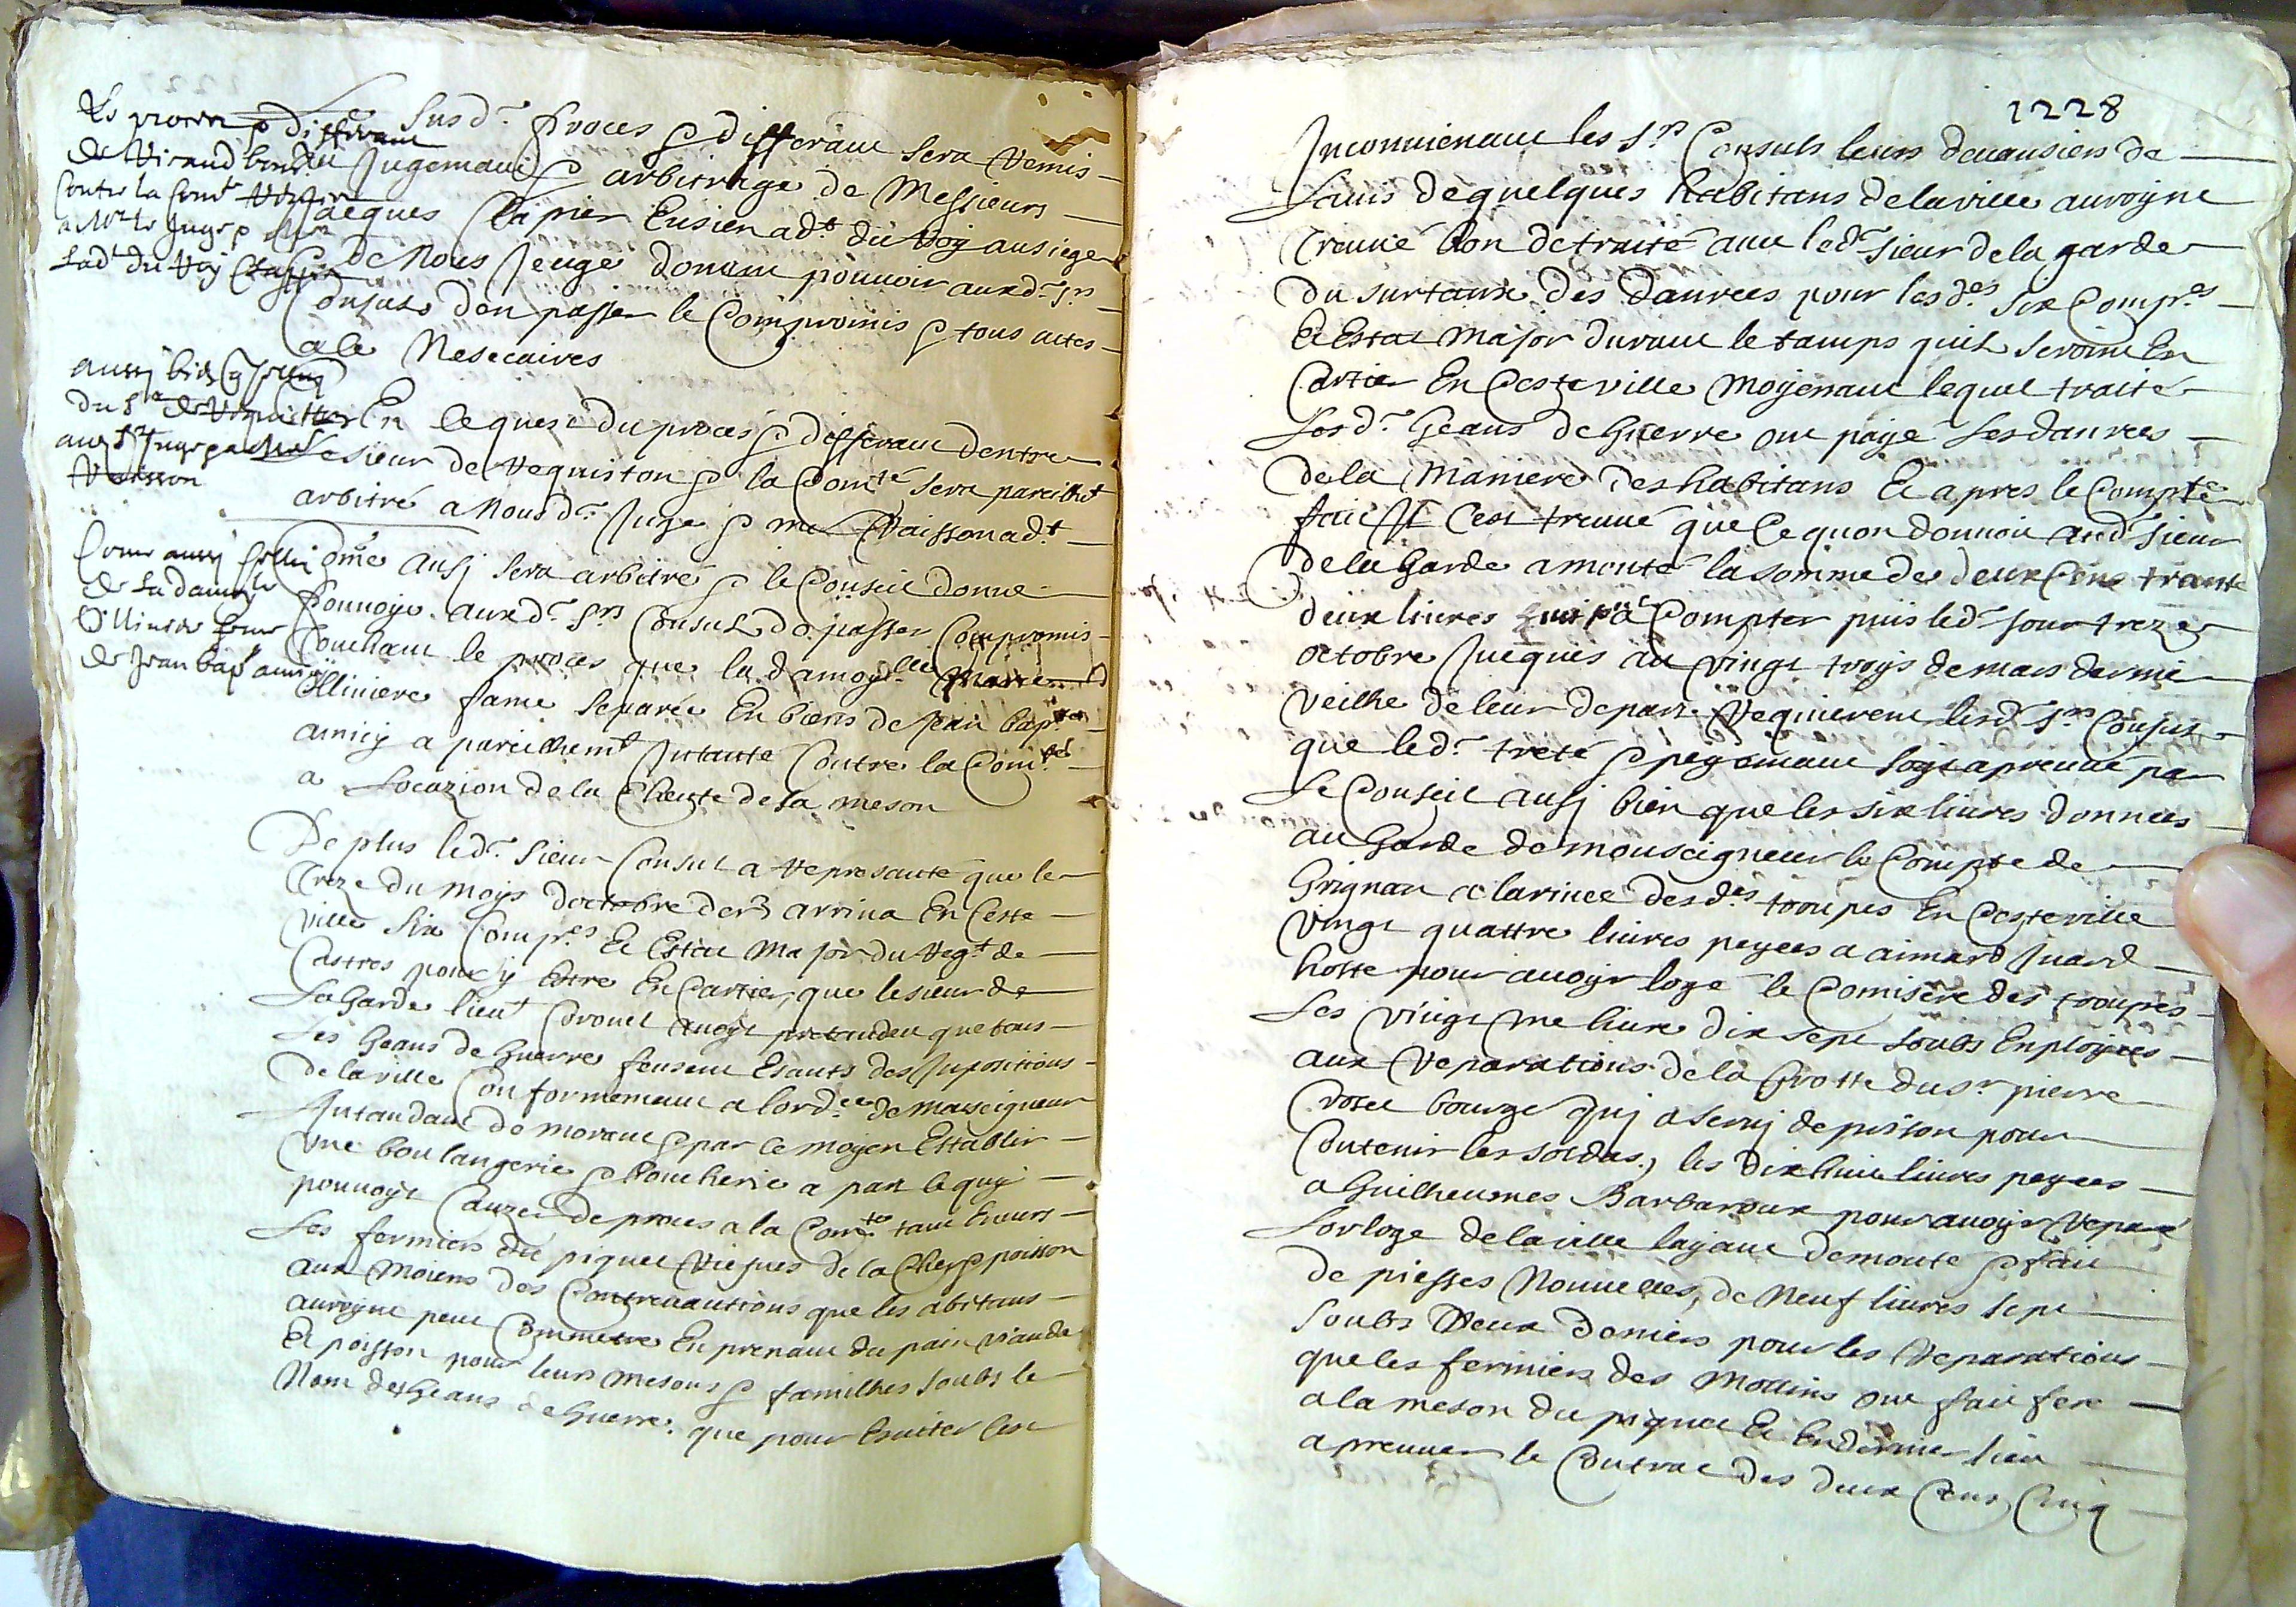 Les proces & differant
de Viraud bour.
contre la com.te
a Mr le Juge &
Lad.t du Roy
Le susd.t proces & differant sera remis
au Jugemant & arbitrage de Messieurs
Jacques Clapier Ensien ad.t du Roy au siege
& de Nous Jeuge donant pouvoir auxd.t s.rs
Consuls den passer le Compromis & tous actes
a ce Nesecaires
aussy bien
du s.r de Requiston
aux s.rs Juge
Raisson
En ce que du proces & differant dentre
Le sieur de Requiston & la Com.té sera pareilhe.t
arbitré a Nousd.t Juge & me Raisson ad.t
Comme aussy
de la damoy.lle
Olliniere feme
de Jean bap. amiq
Come ausj sera arbitré & le Conseil donne
pouvoyr auxd.t s.rs Consuls de passer Compromis
Touchant le proces que la damoy.lle
Olliniere fame separée En biens de Jean bap.te
amiq a pareillem.t Intanté Contre la Com.té
a Locazion de la Cheute de sa meson
De plus led.t sieur Consul a represanté que le
Treze du moys doctobre der.r arriva En ceste
ville six Comp.es Et Estat Major du Reg.t de
Castres pour y Estre En Cartier, que le sieur de
La Garde lieu.t Coronel avoyt pretandeu que tous
Les Geans de Guerre feusent Esants des Inpositions
de la ville Conformemant a lord.ce de Monseigneur
Intandant de morant & par ce moyen Establir
Une boulangerie & boucherie a part ce quy
pouvoyt Cauzer de proces a la Com.té tant Envers
Les fermiers du piquet Rieves de la Cher & poisson
aux moiens des Contrevantions que les abitans
auroynt peut Commetre En prenant du pain viande
Et poisson pour leurs mesons & familhes soubs le
Nom des Geans de Guerre. que pour Eviter Cest
1228
Inconvienant les s.rs Consuls leurs devansiers de
Lavis de quelques habitans de la ville auroynt
Treuvé bon de traité avec led.t sieur de la garde
du surtaux des danrees pour lesd.es six Comp.es
Et Estat Major durant le tamps quil seroint En
Cartier En Ceste ville Moyenant lequel traité
Lesd.t Geans de Guerre ont payé Les danrees
de la Maniere des habitans Et apres le Compte
fait Il Cest treuvé que Ce quon donnoit aud.t sieur
de la Garde amonte la somme de deux Cens trante
deux livres a Compter puis led.t jour treze
octobre Jueques au vingt troys de mars dernie
veilhe de leur depart. Requierent lesd.t s.rs Consuls
que led.t treté & payemant soyt apreuvé par
Le Conseil ausj bien que les six livres donnees
au Garde de monseigneur le Compte de
Grignan a larivee desd.es troupes En Ceste ville
Vingt quattre livres payees a aimard Juard
hoste pour avoyr logé le Comisere des troupes
Les vingt une livre dix sept soubs Employees
aux Reparations de la Crotte du s.r pierre
bourge quj a servj de prison pour
Contenir les soldas, les dix huit livres payees
a Guilheumes Barbaroux pour avoyr Reparé
Lorloge de la ville layant demonté & fait
de piesses Nouvelles, de Neuf livres sept
soubs Deux deniers pour les Reparations
que les fermiers des Mollins ont fait fere
a la meson du piquet Et En dernier lieu
apreuver le Contrac des deux Cens Cinq